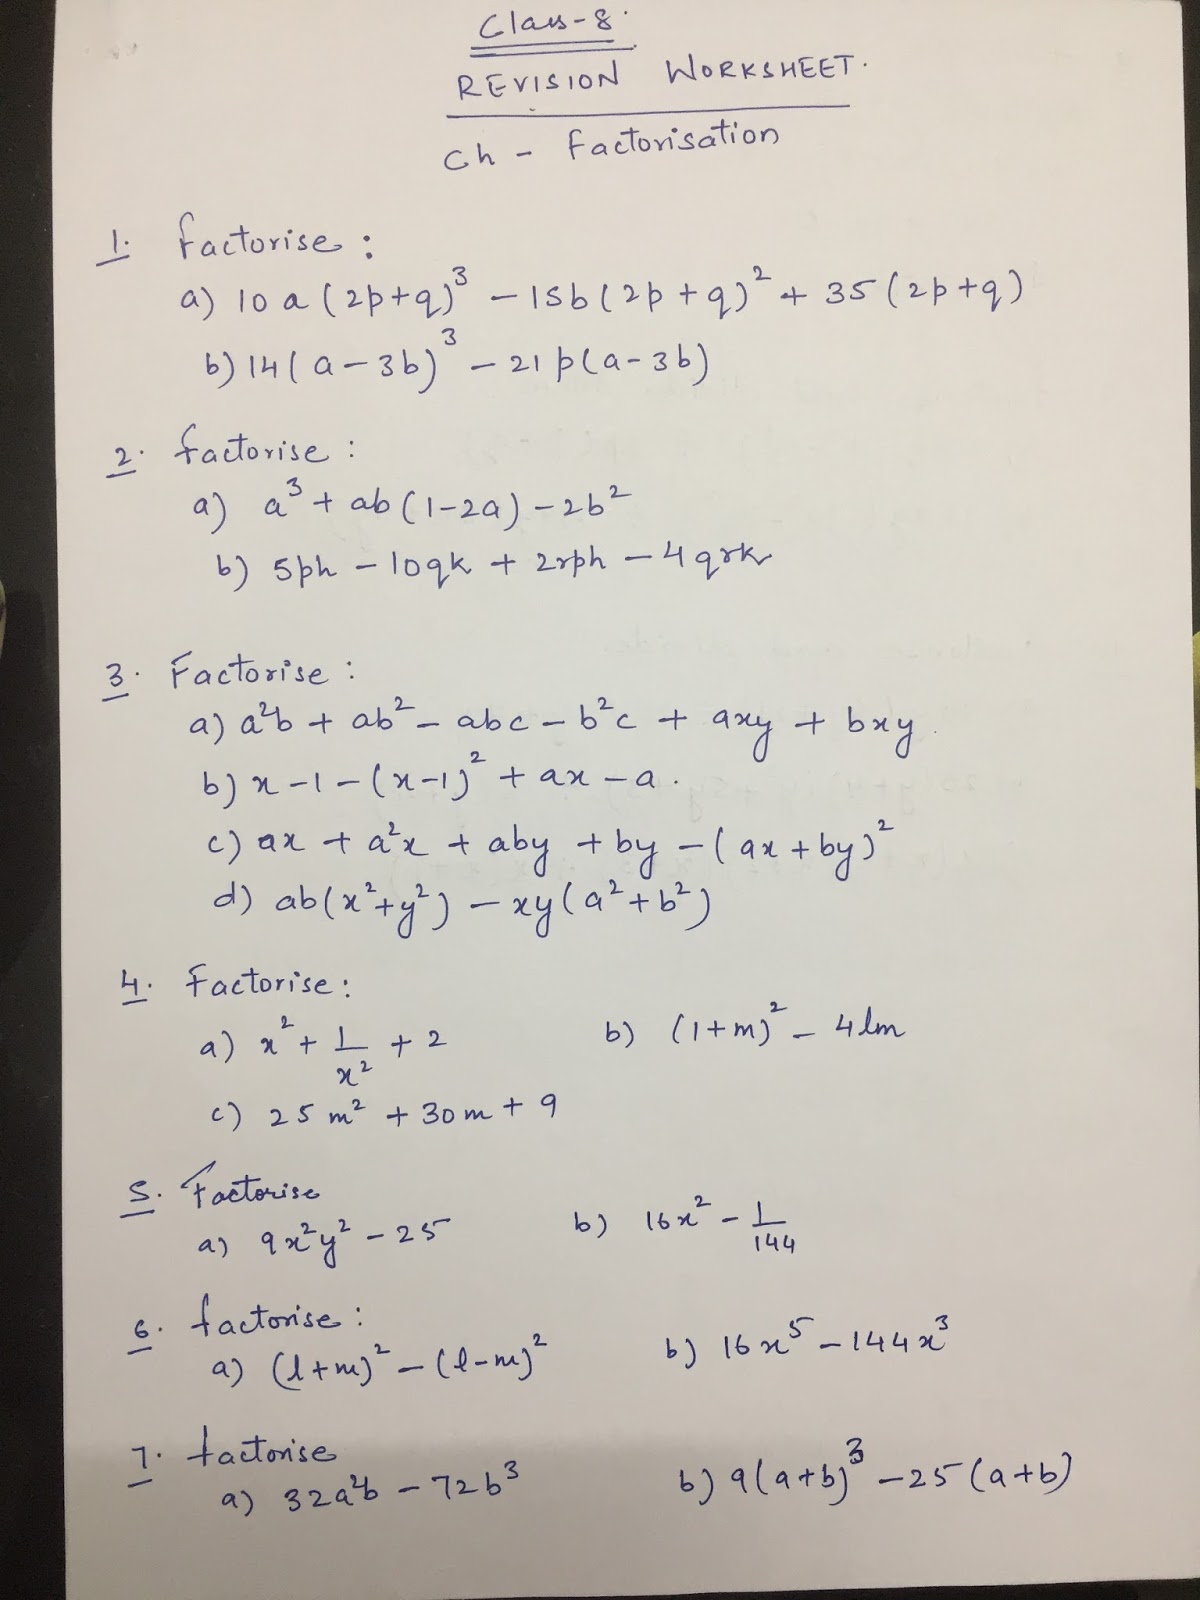 Class-8.
REVISION WORKSHEET.
Ch - Factorisation
1. Factorise:
a) 10 a (2p+q)³ - 15b (2p+q)² + 35 (2p+q)
b) 14 (a-3b)³ - 21 p(a-3b)
2. factorise:
a) a³ + ab (1-2a) - 2b²
b) 5ph - 10qk + 2rph - 4qrk
3. Factorise:
a) a²b + ab² - abc - b²c + axy + bxy
b) x-1-(x-1)² + ax - a.
c) ax + a²x + aby + by - (ax + by)²
d) ab(x²+y²) - xy(a²+b²)
4. Factorise:
a) x² + 1/x² + 2 b) (l+m)² - 4lm
c) 25m² + 30m + 9
5. Factorise
a) 9x²y² - 25 b) 16x² - 1/144
6. factorise:
a) (l+m)² - (l-m)² b) 16x⁵ - 144x³
7. factorise
a) 32a²b - 72b³ b) 9(a+b)³ - 25(a+b)